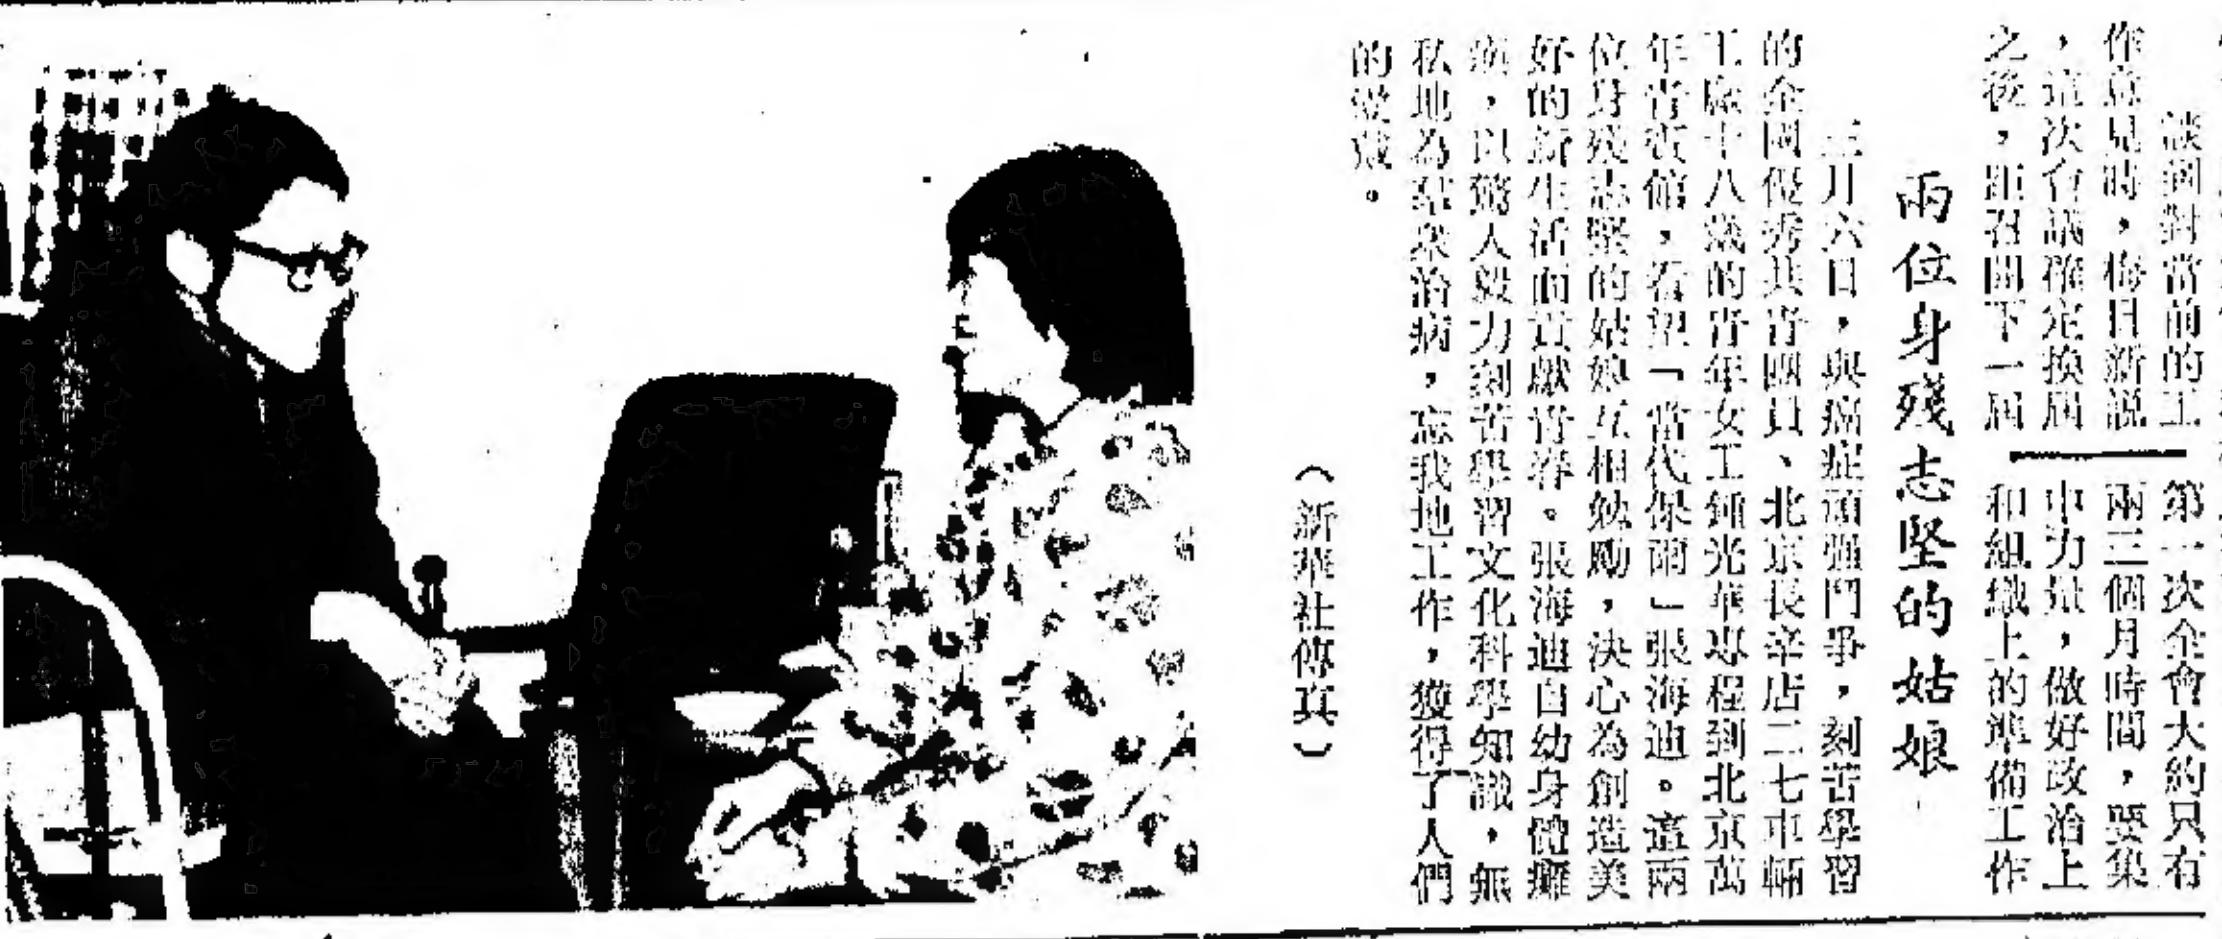 談到對當前的工
作意見時，梅日新說
，這次會議確定換屆
之後，距召開下一屆
第一次全會大約只有
兩三個月時間，要集
中力量，做好政治上
和組織上的準備工作
兩位身殘志坚的姑娘
三月六日，與癌症頑强鬥爭，刻苦學習
的全國優秀共青團員、北京長辛店二七車輛
工廠十八歲的青年女工鍾光華專程到北京萬
年青賓館，看望「當代保爾」張海迪。這兩
位身殘志堅的姑娘互相勉勵，決心為創造美
好的新生活而貢獻青春。張海迪自幼身體癱
瘓，以驚人毅力刻苦學習文化科學知識，無
私地為羣衆治病，忘我地工作，獲得了人們
的愛戴。
（新華社傳真）